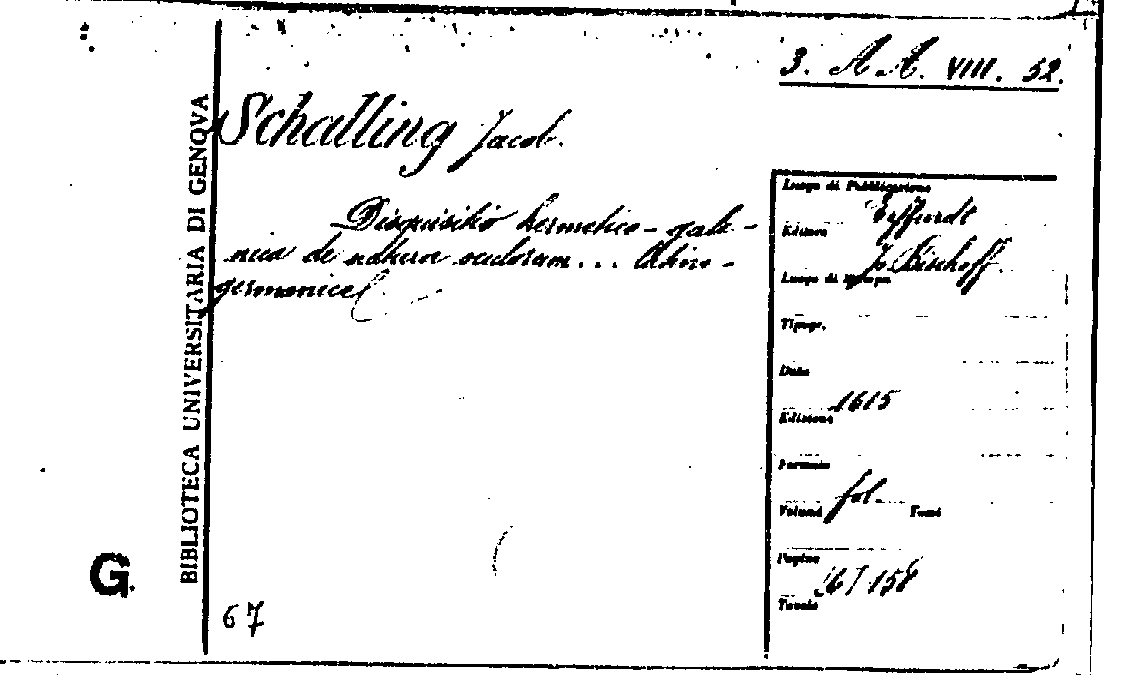 3. A A. VIII. 52.
Schalling Jacob.
Disquisitio hermetico-gale-
nica de natura oculorum...
germanice
Luogo di Pubblicazione
Erffurdt
Editore
J. Bischoff.
Luogo di Stampa
Tipogr.
Data
1615
Edizione
Formato
fol.
Volumi Tomi
Pagine
158
Tavole
BIBLIOTECA UNIVERSITARIA DI GENOVA
G.
67